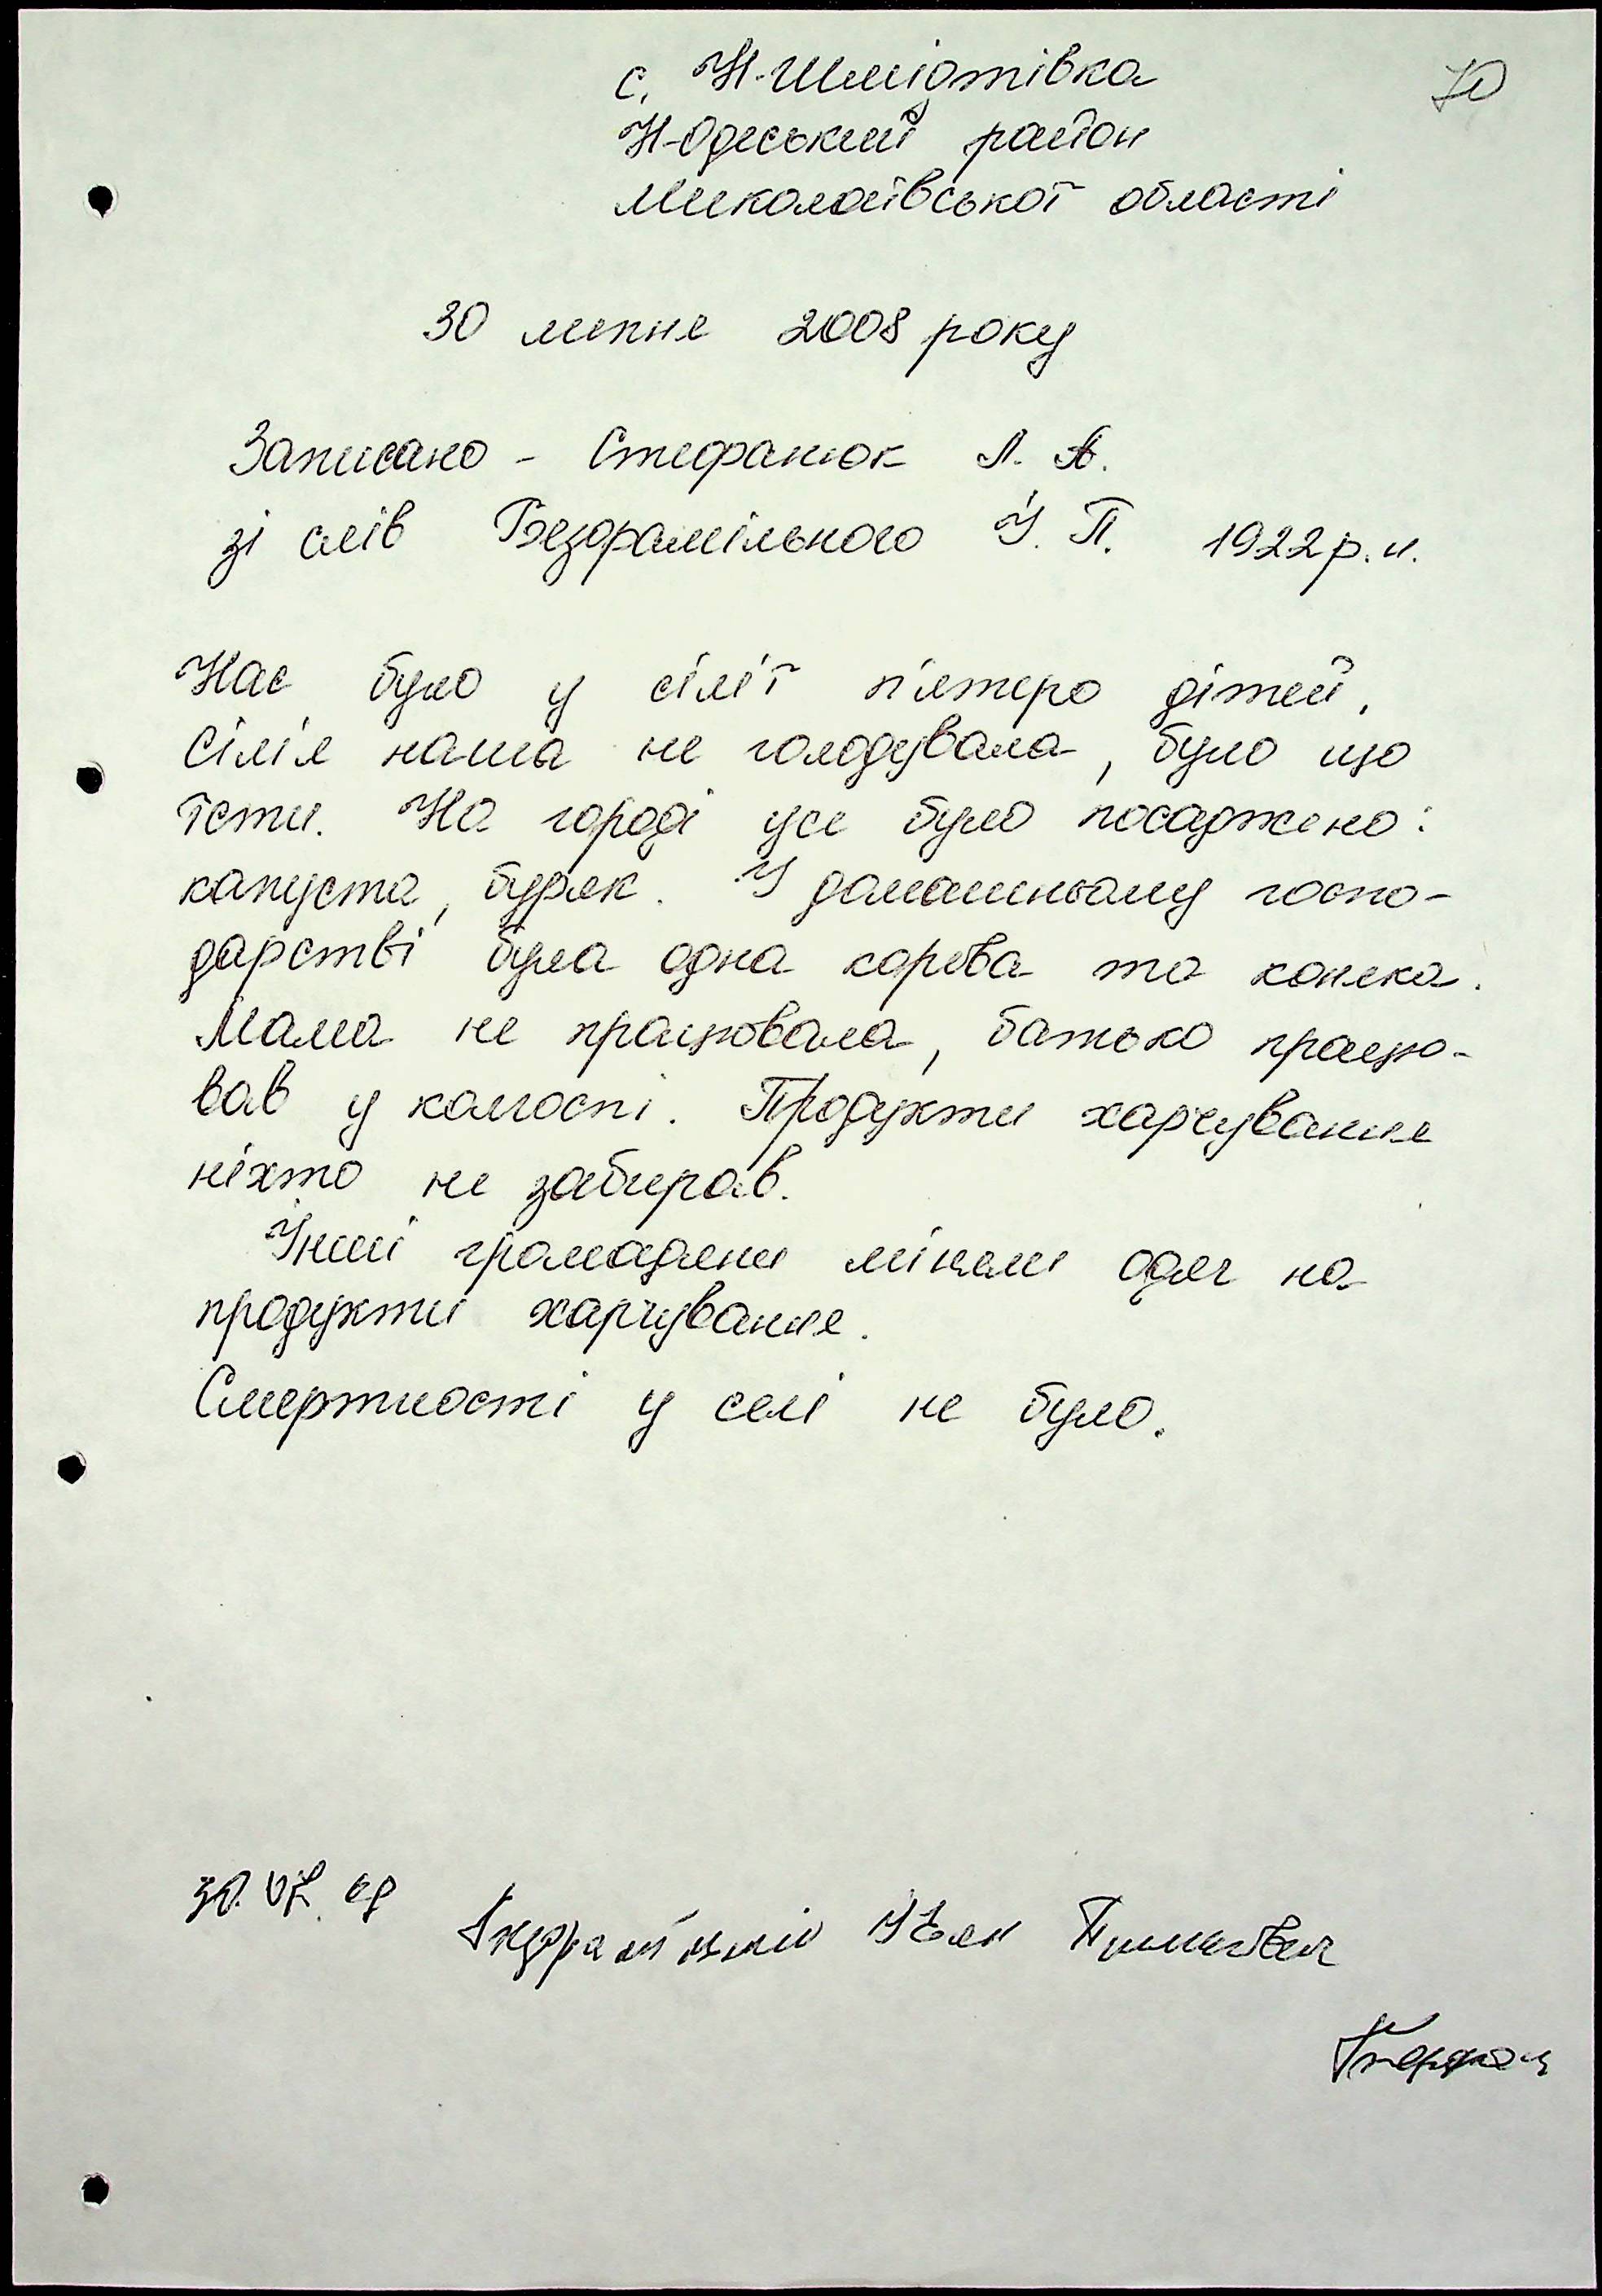 70
с. Н-Шмідтівка
Н-Одеський район
Миколаївської області
30 липня 2008 року
Записано - Стефанюк Л. А.
зі слів Безфамільного І. П. 1922 р. н.
Нас було у сім'ї п'ятеро дітей.
Сім'я наша не голодувала, було що
їсти. На городі усе було посаджено:
капуста, буряк. У домашньому госпо-
дарстві була одна корова та коняка.
Мама не працювала, батько працю-
вав у колгоспі. Продукти харчування
ніхто не забирав.
Інші громадяни міняли одяг на
продукти харчування.
Смертності у селі не було.
30.07.08
Іван